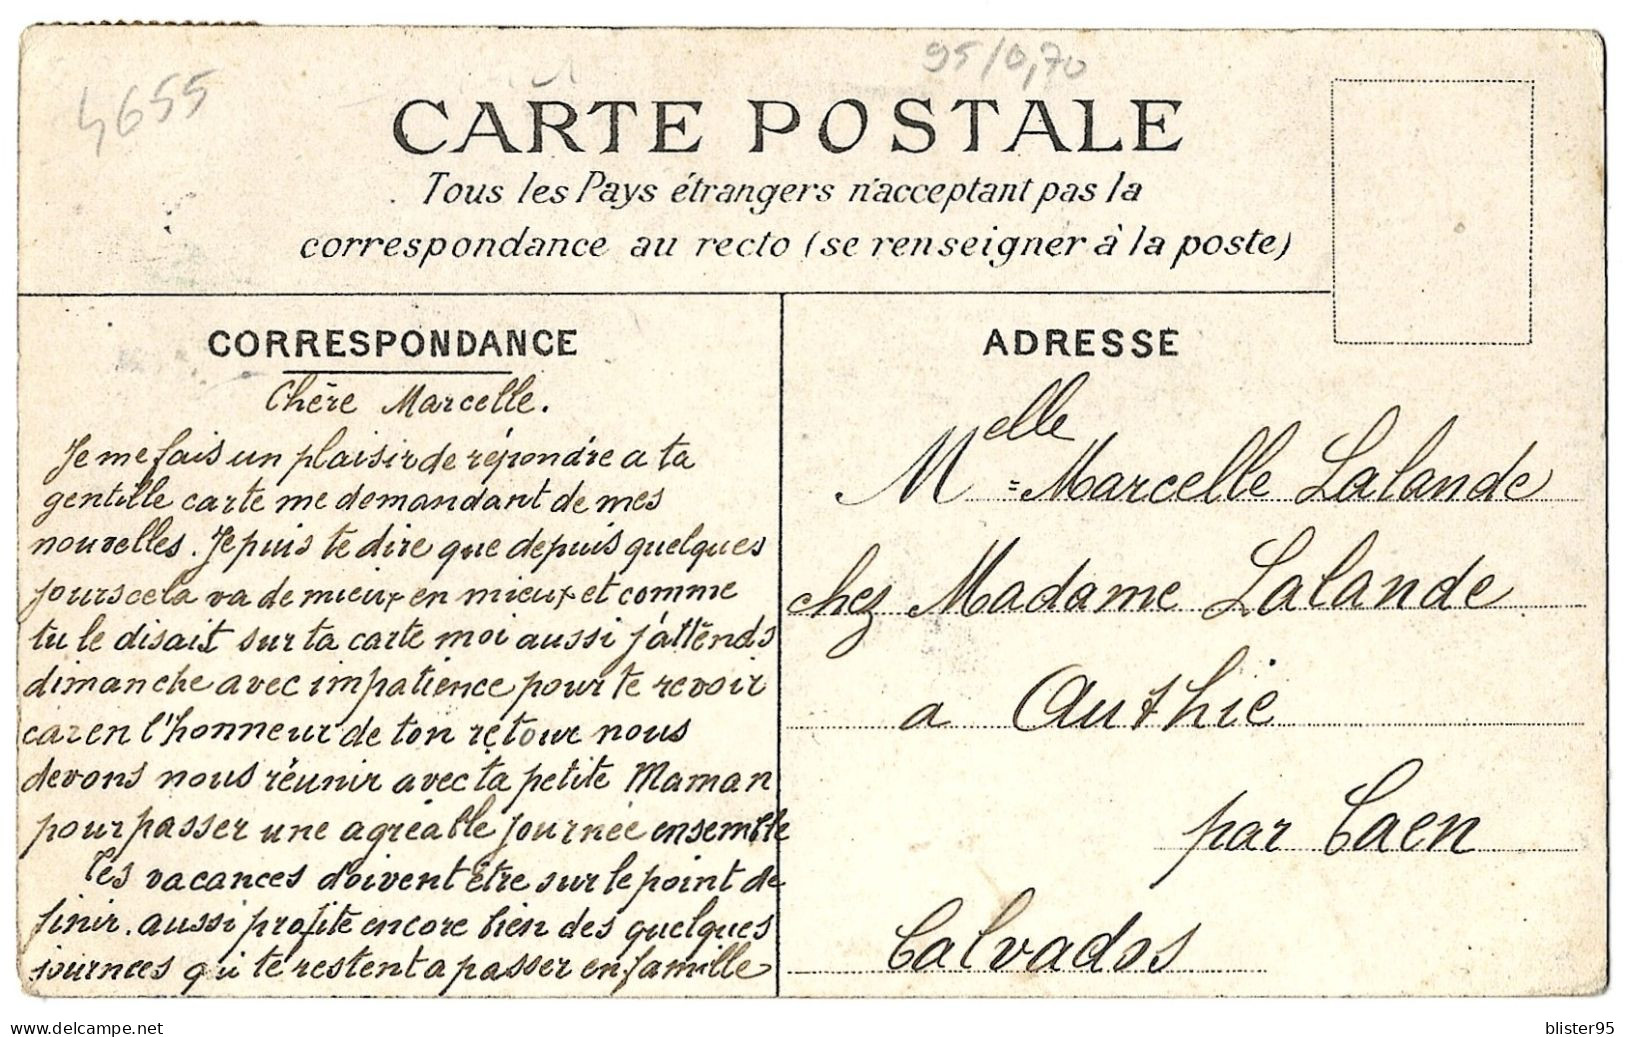 4655
95/0,70
CARTE POSTALE
Tous les Pays étrangers n'acceptant pas la
correspondance au recto (se renseigner à la poste)
CORRESPONDANCE
Chère Marcelle.
Je me fais un plaisir de répondre a ta
gentille carte me demandant de mes
nouvelles. Je puis te dire que depuis quelques
jours cela va de mieux en mieux et comme
tu le disait sur ta carte moi aussi j'attends
dimanche avec impatience pour te revoir
car en l'honneur de ton retour nous
devons nous réunir avec ta petite Maman
pour passer une agréable journée ensemble
Tes vacances doivent être sur le point de
finir. aussi profite encore bien des quelques
journees qui te restent a passer en famille
ADRESSE
Melle Marcelle Lalande
chez Madame Lalande
a Authie
par Caen
Calvados
delcampe.net
blister95